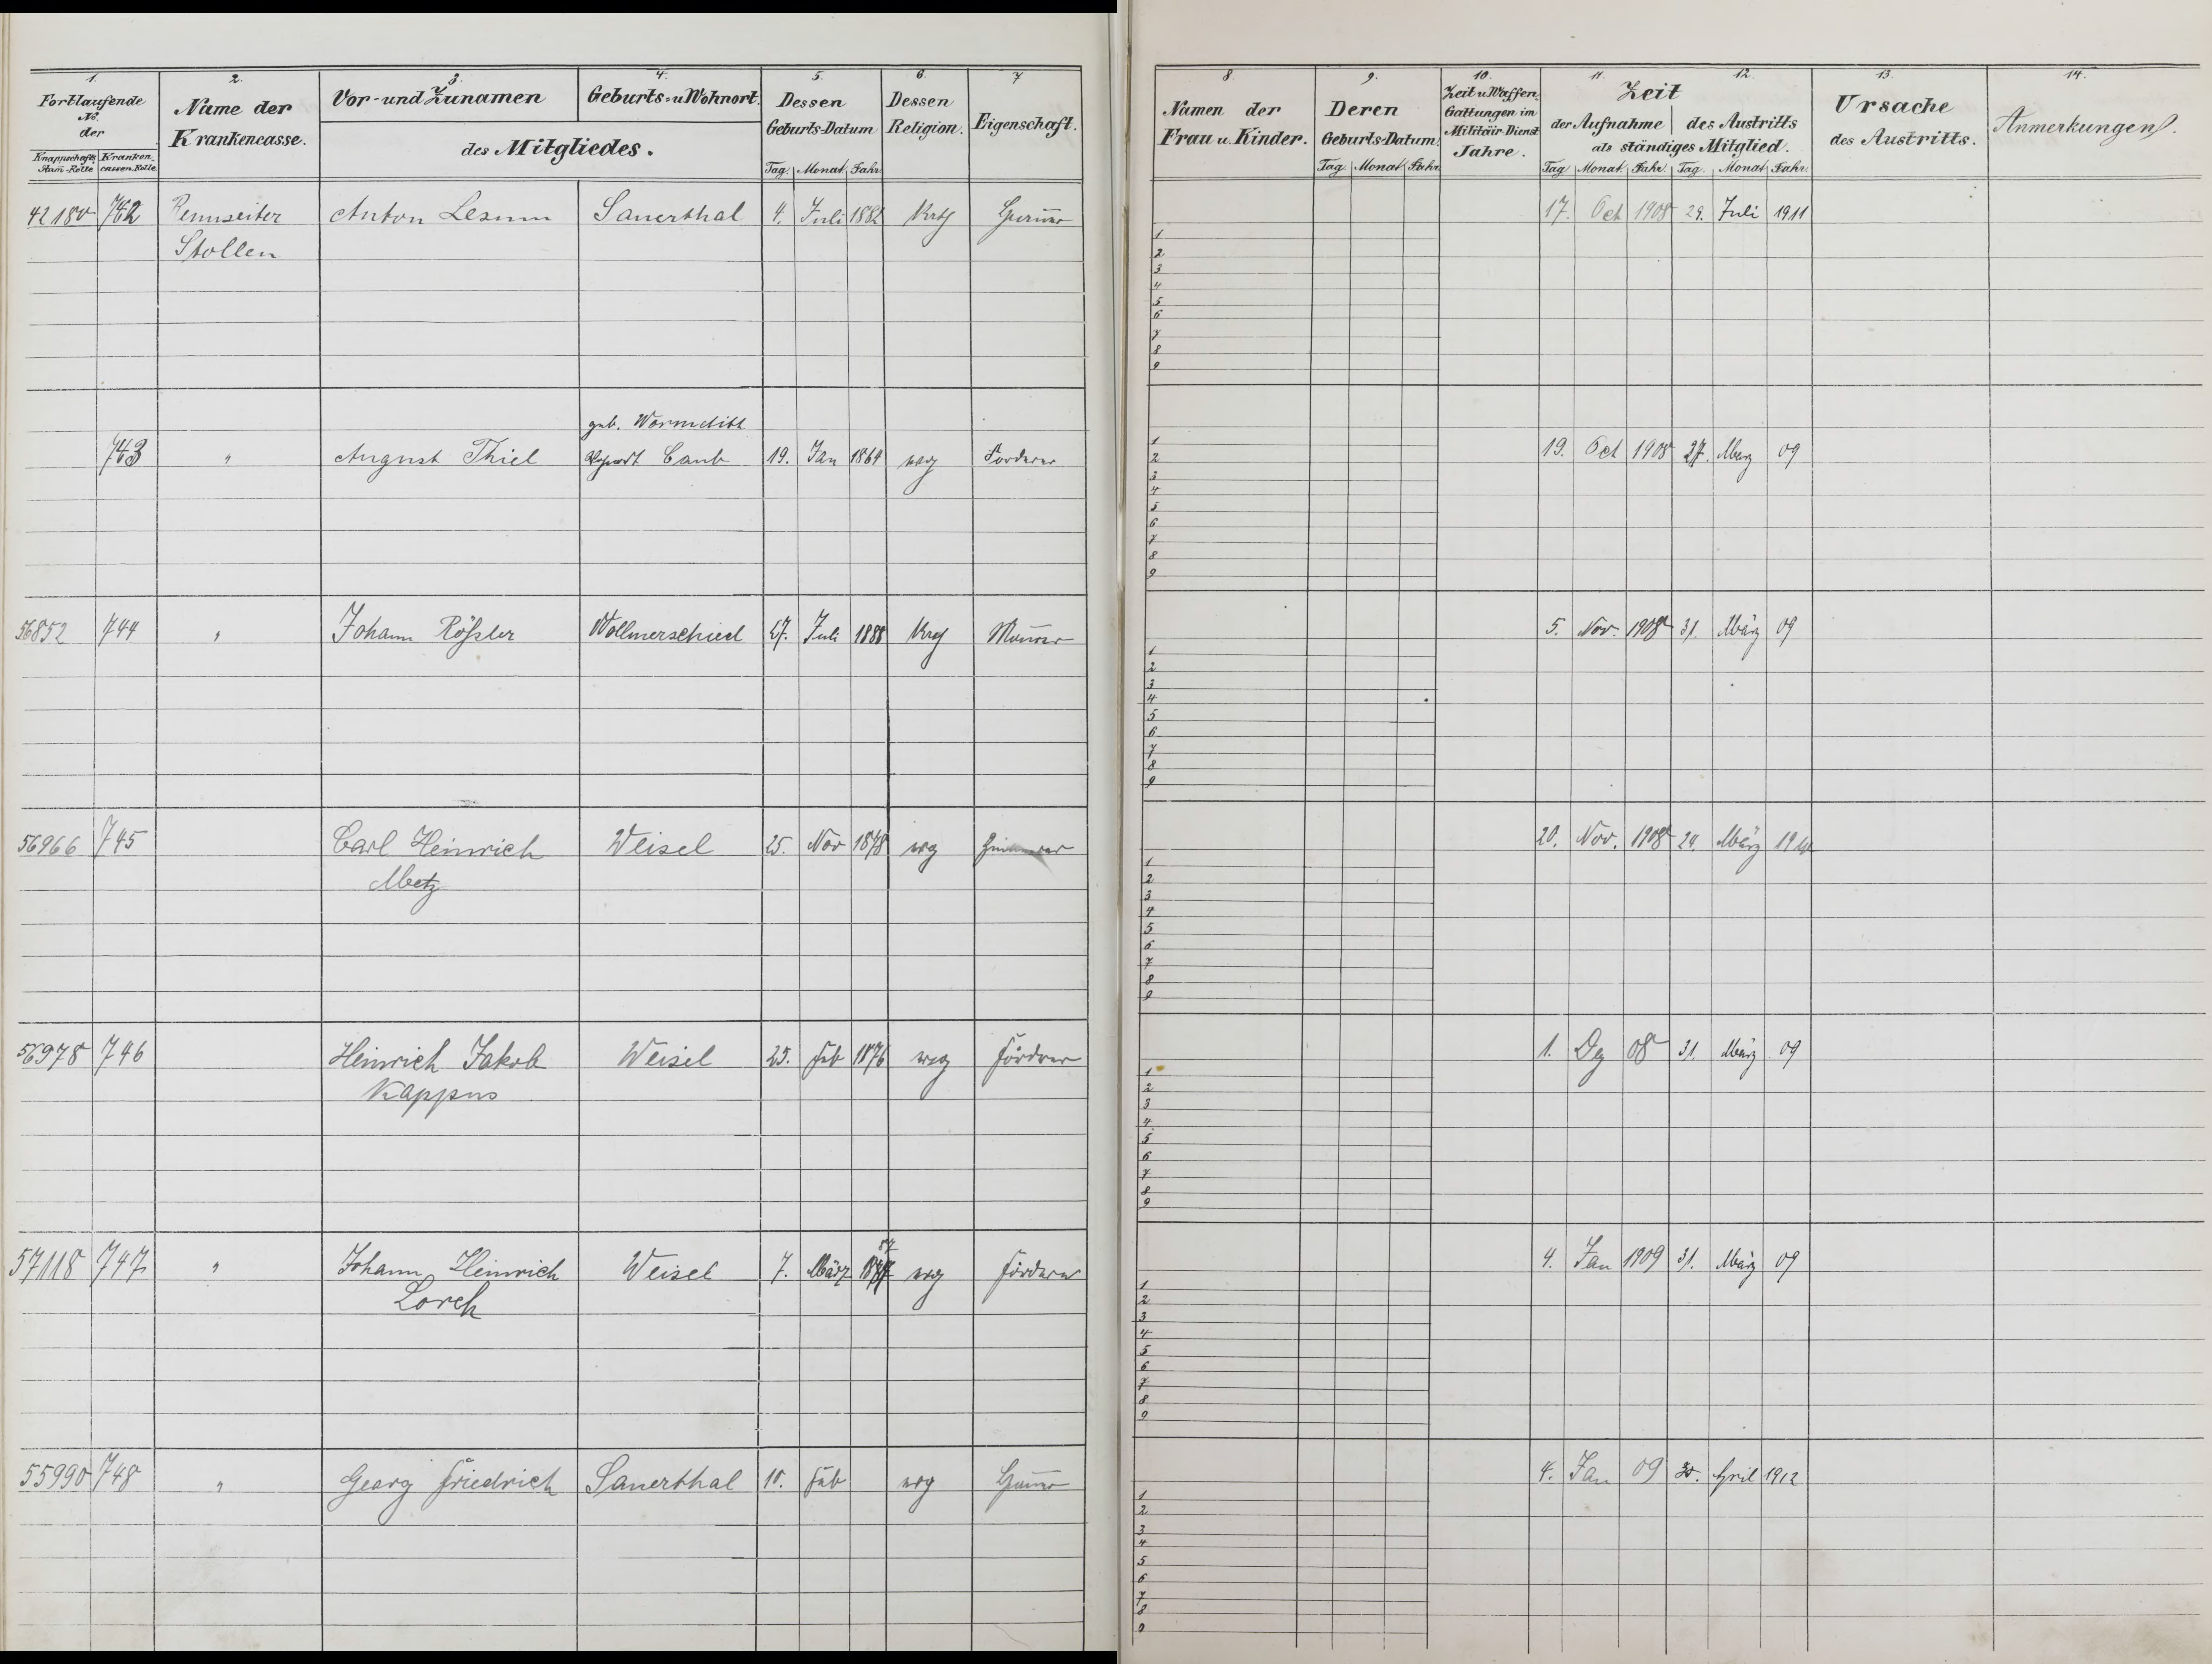 1. 2. 3. 4. 5. 6. 7
Fortlaufende No. der
Knappschafts Stam-Rolle Kranken-cassen-Rolle
Name der Krankencasse.
Vor- und Zunamen Geburts- u Wohnort.
des Mitgliedes.
Dessen Geburts-Datum
Tag. Monat. Jahr
Dessen Religion.
Eigenschaft.
8. 9. 10. 11. 12. 13. 14.
Namen der Frau u. Kinder.
Deren Geburts-Datum.
Tag. Monat Jahr.
Zeit u Waffen Gattungen im Militär Dienst Jahre.
Zeit
der Aufnahme des Austritts
als ständiges Mitglied.
Tag Monat. Jahr. Tag. Monat Jahr.
Ursache des Austritts.
Anmerkungen.
42180 742 Rennseiter Anton Lesum Sauerthal 4. Juli 1882 Kath 17. Oct 1908 29. Juli 1911
Stollen
1
2
3
4
5
6
7
8
9
geb. Wormditt
743 " August Thiel Caub 19. Jan 1869 evg Förderer 19. Oct 1908 27. Merz 09
1
2
3
4
5
6
7
8
9
56852 744 " Johann Rößler Wollmerschied 27. Juli 1888 Maurer 5. Nov. 1908 31. März 09
1
2
3
4
5
6
7
8
9
56966 745 Carl Heinrich Weisel 25. Nov 1878 evg 20. Nov. 1908 24. März
Metz
1
2
3
4
5
6
7
8
9
56978 746 Heinrich Jakob Weisel 25. Feb 1876 evg Förderer 1. Dez 08 31. März 09
Kappus
1
2
3
4
5
6
7
8
9
57118 747 " Johann Heinrich Weisel 7. März 87 evg Förderer 4. Jan 1909 31. März 09
Lorch
1
2
3
4
5
6
7
8
9
55990 748 " Georg Friedrich Sauerthal 10. Feb evg 4. Jan 09 30. April 1912
1
2
3
4
5
6
7
8
9